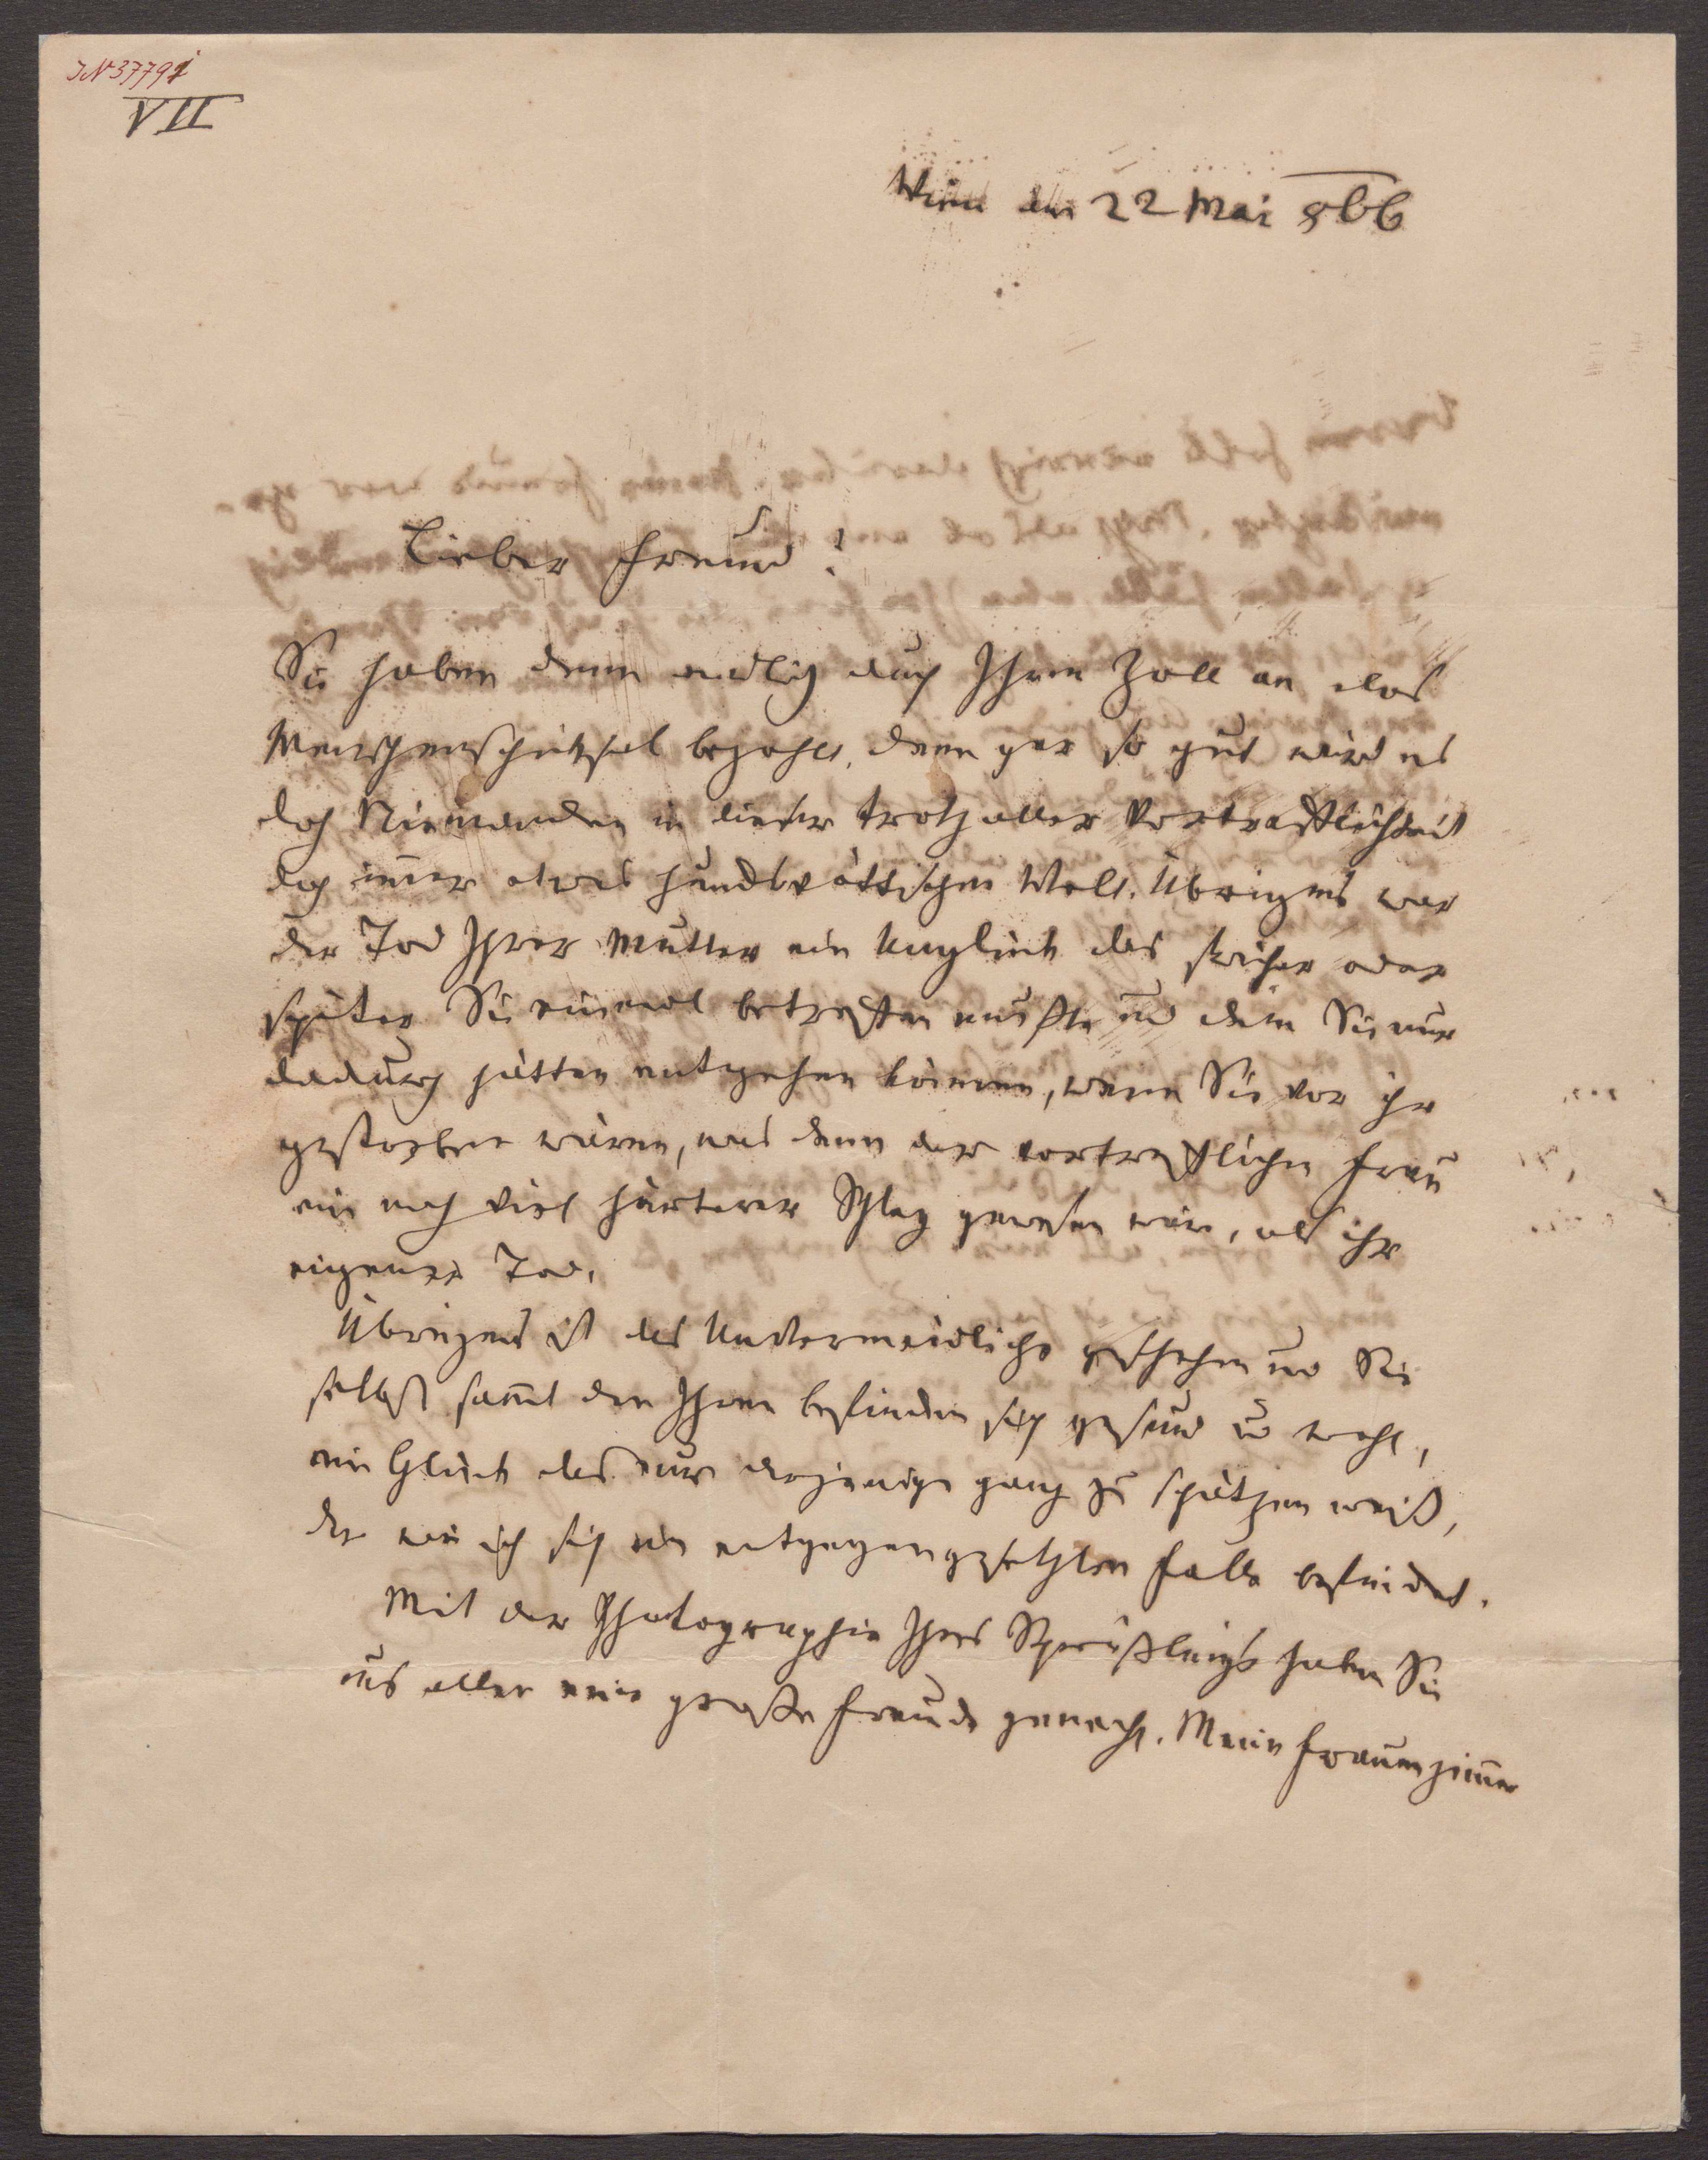 IN 37791
VII
Wien den 22 Mai 866
Lieber Freund!
Sie haben denn endlich auch Ihren Zoll an das
Menschenschicksal bezahlt, denn gar so gut wird es
doch Niemanden in dieser trotz aller Vortrefflichkeit
doch im̄er etwas hundsvöttischen Welt. Übrigens war
der Tod Ihrer Mutter ein Unglück das früher oder
später Sie einmal betreffen mußte und dem Sie nur
dadurch hätten entgehen können, wenn Sie vor ihr
gestorben wären, was denn der vortrefflichen Frau
ein noch viel härterer Schlag gewesen wäre, als ihr
eigener Tod.
Übrigens ist das Unvermeidliche geschehen und Sie
selbst sam̄t den Ihren befinden sich gesund u wohl,
ein Glück das nur derjenige ganz zu schätzen weiß,
der wie ich sich im entgegengesetzten Falle befindet.
Mit der Photographie Ihres Sprößlings haben Sie
uns allen eine große Freude gemacht. Meine Frauenzim̄er